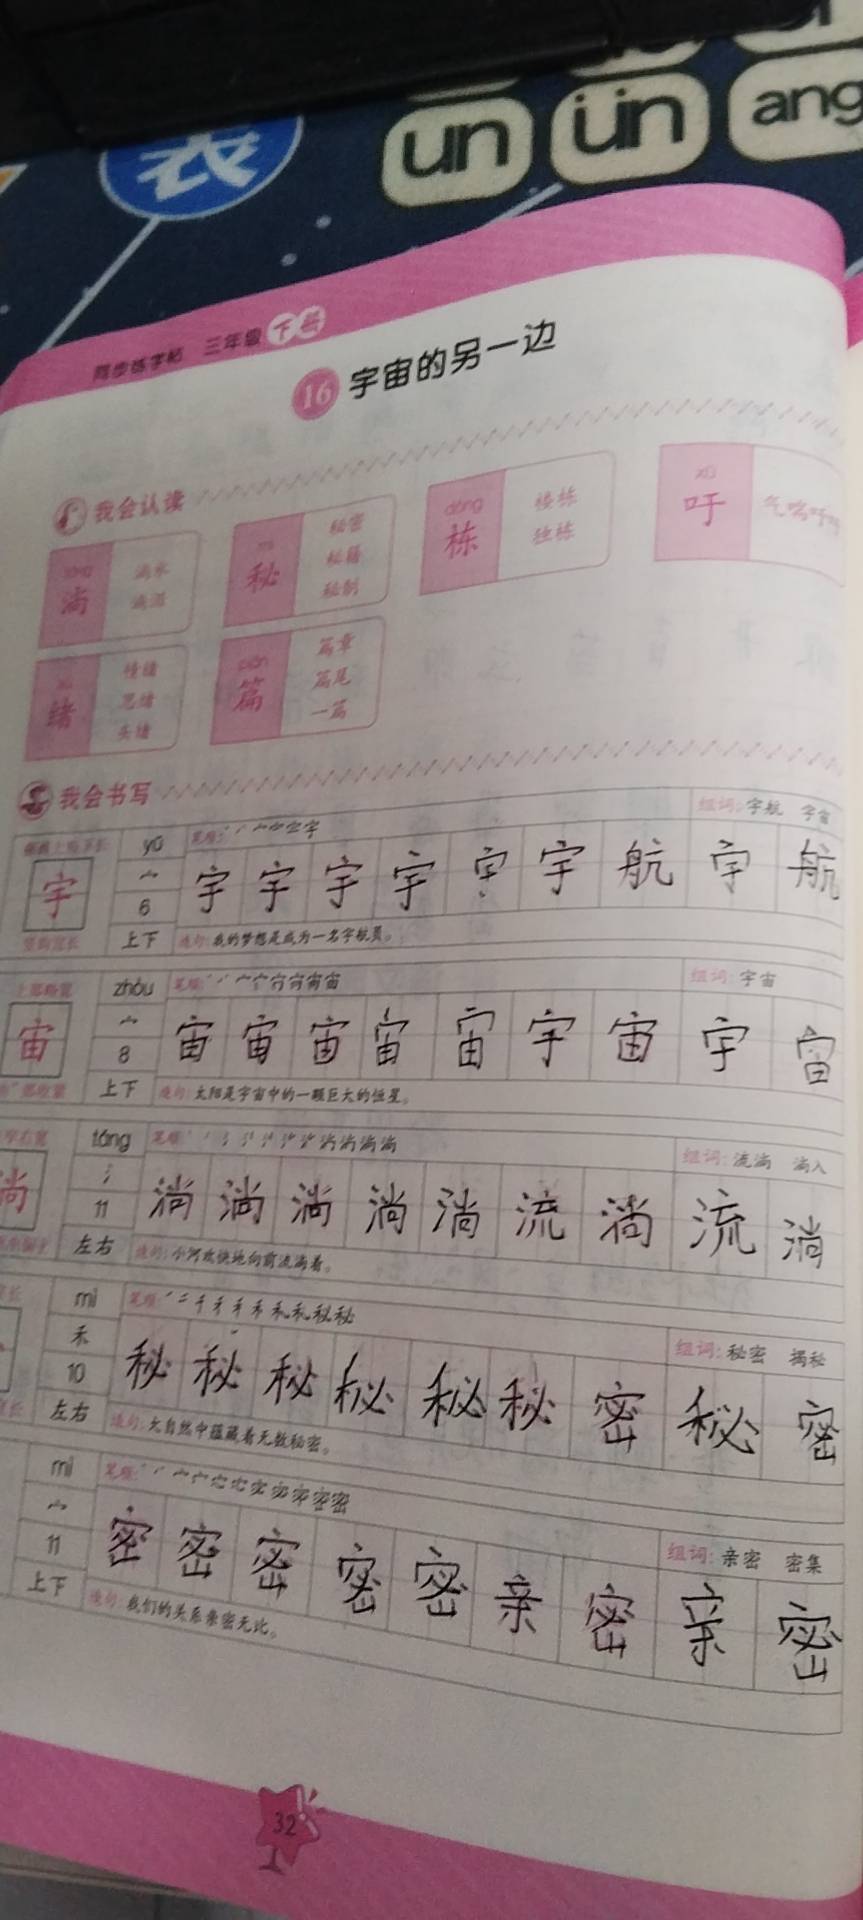 表 un ün ang
同步练字帖 三年级 下册
16 宇宙的另一边
我会认读
淌 淌水
秘 秘密 秘籍 秘制
dòng 栋 楼栋 独栋
xū 吁 气喘吁吁
绪 情绪 思绪 头绪
piān 篇 篇章 篇尾 一篇
我会书写
yǔ 笔顺: 组词: 宇航 宇宙
宇 宀 6 宇 宇 宇 宇 宇 宇 航 宇 航
上下 造句: 我的梦想是成为一名宇航员。
zhòu 笔顺: 组词: 宇宙
宙 宀 8 宙 宙 宙 宙 宙 宇 宙 宇 宙
上下 造句: 太阳是宇宙中的一颗巨大的恒星。
tǎng 笔顺: 组词: 流淌 淌入
淌 氵 11 淌 淌 淌 淌 淌 流 淌 流 淌
左右 造句: 小河欢快地向前流淌着。
mì 笔顺: 组词: 秘密 揭秘
禾 10 秘 秘 秘 秘 秘 秘 密 秘 密
左右 造句: 大自然中蕴藏着无数秘密。
mì 笔顺: 组词: 亲密 密集
宀 11 密 密 密 密 密 亲 密 亲 密
上下 造句: 我们的关系亲密无比。
32